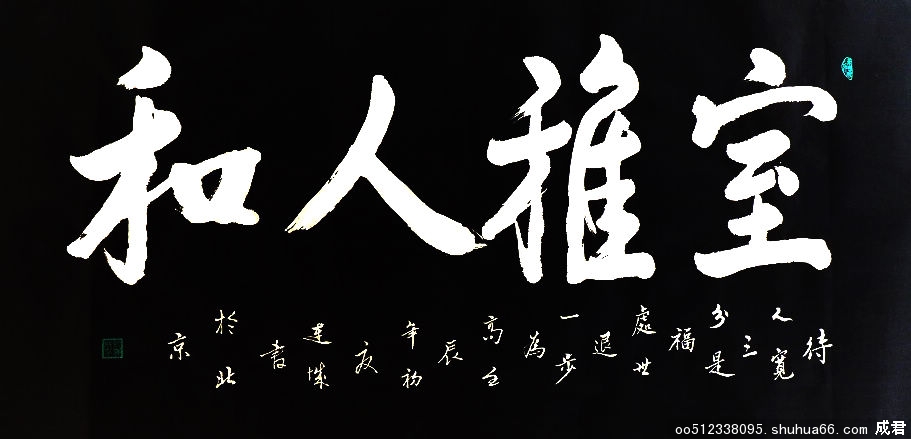 室雅人和
待人寬三分是福處世退一步為高壬辰年初夏連城書於北京
oo512338095.shuhua66.com 成君